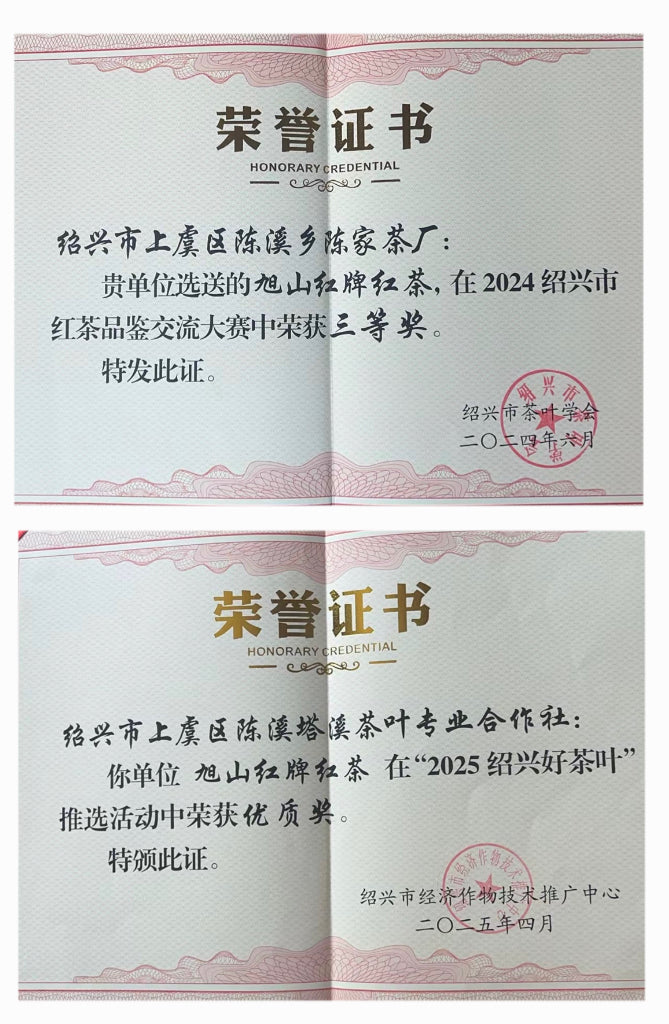 荣誉证书
HONORARY CREDENTIAL
绍兴市上虞区陈溪乡陈家茶厂：
贵单位选送的旭山红牌红茶，在2024绍兴市
红茶品鉴交流大赛中荣获三等奖。
特发此证。
绍兴市茶叶学会
二〇二四年六月
荣誉证书
HONORARY CREDENTIAL
绍兴市上虞区陈溪塔溪茶叶专业合作社：
你单位 旭山红牌红茶 在“2025绍兴好茶叶”
推选活动中荣获优质奖。
特颁此证。
绍兴市经济作物技术推广中心
二〇二五年四月